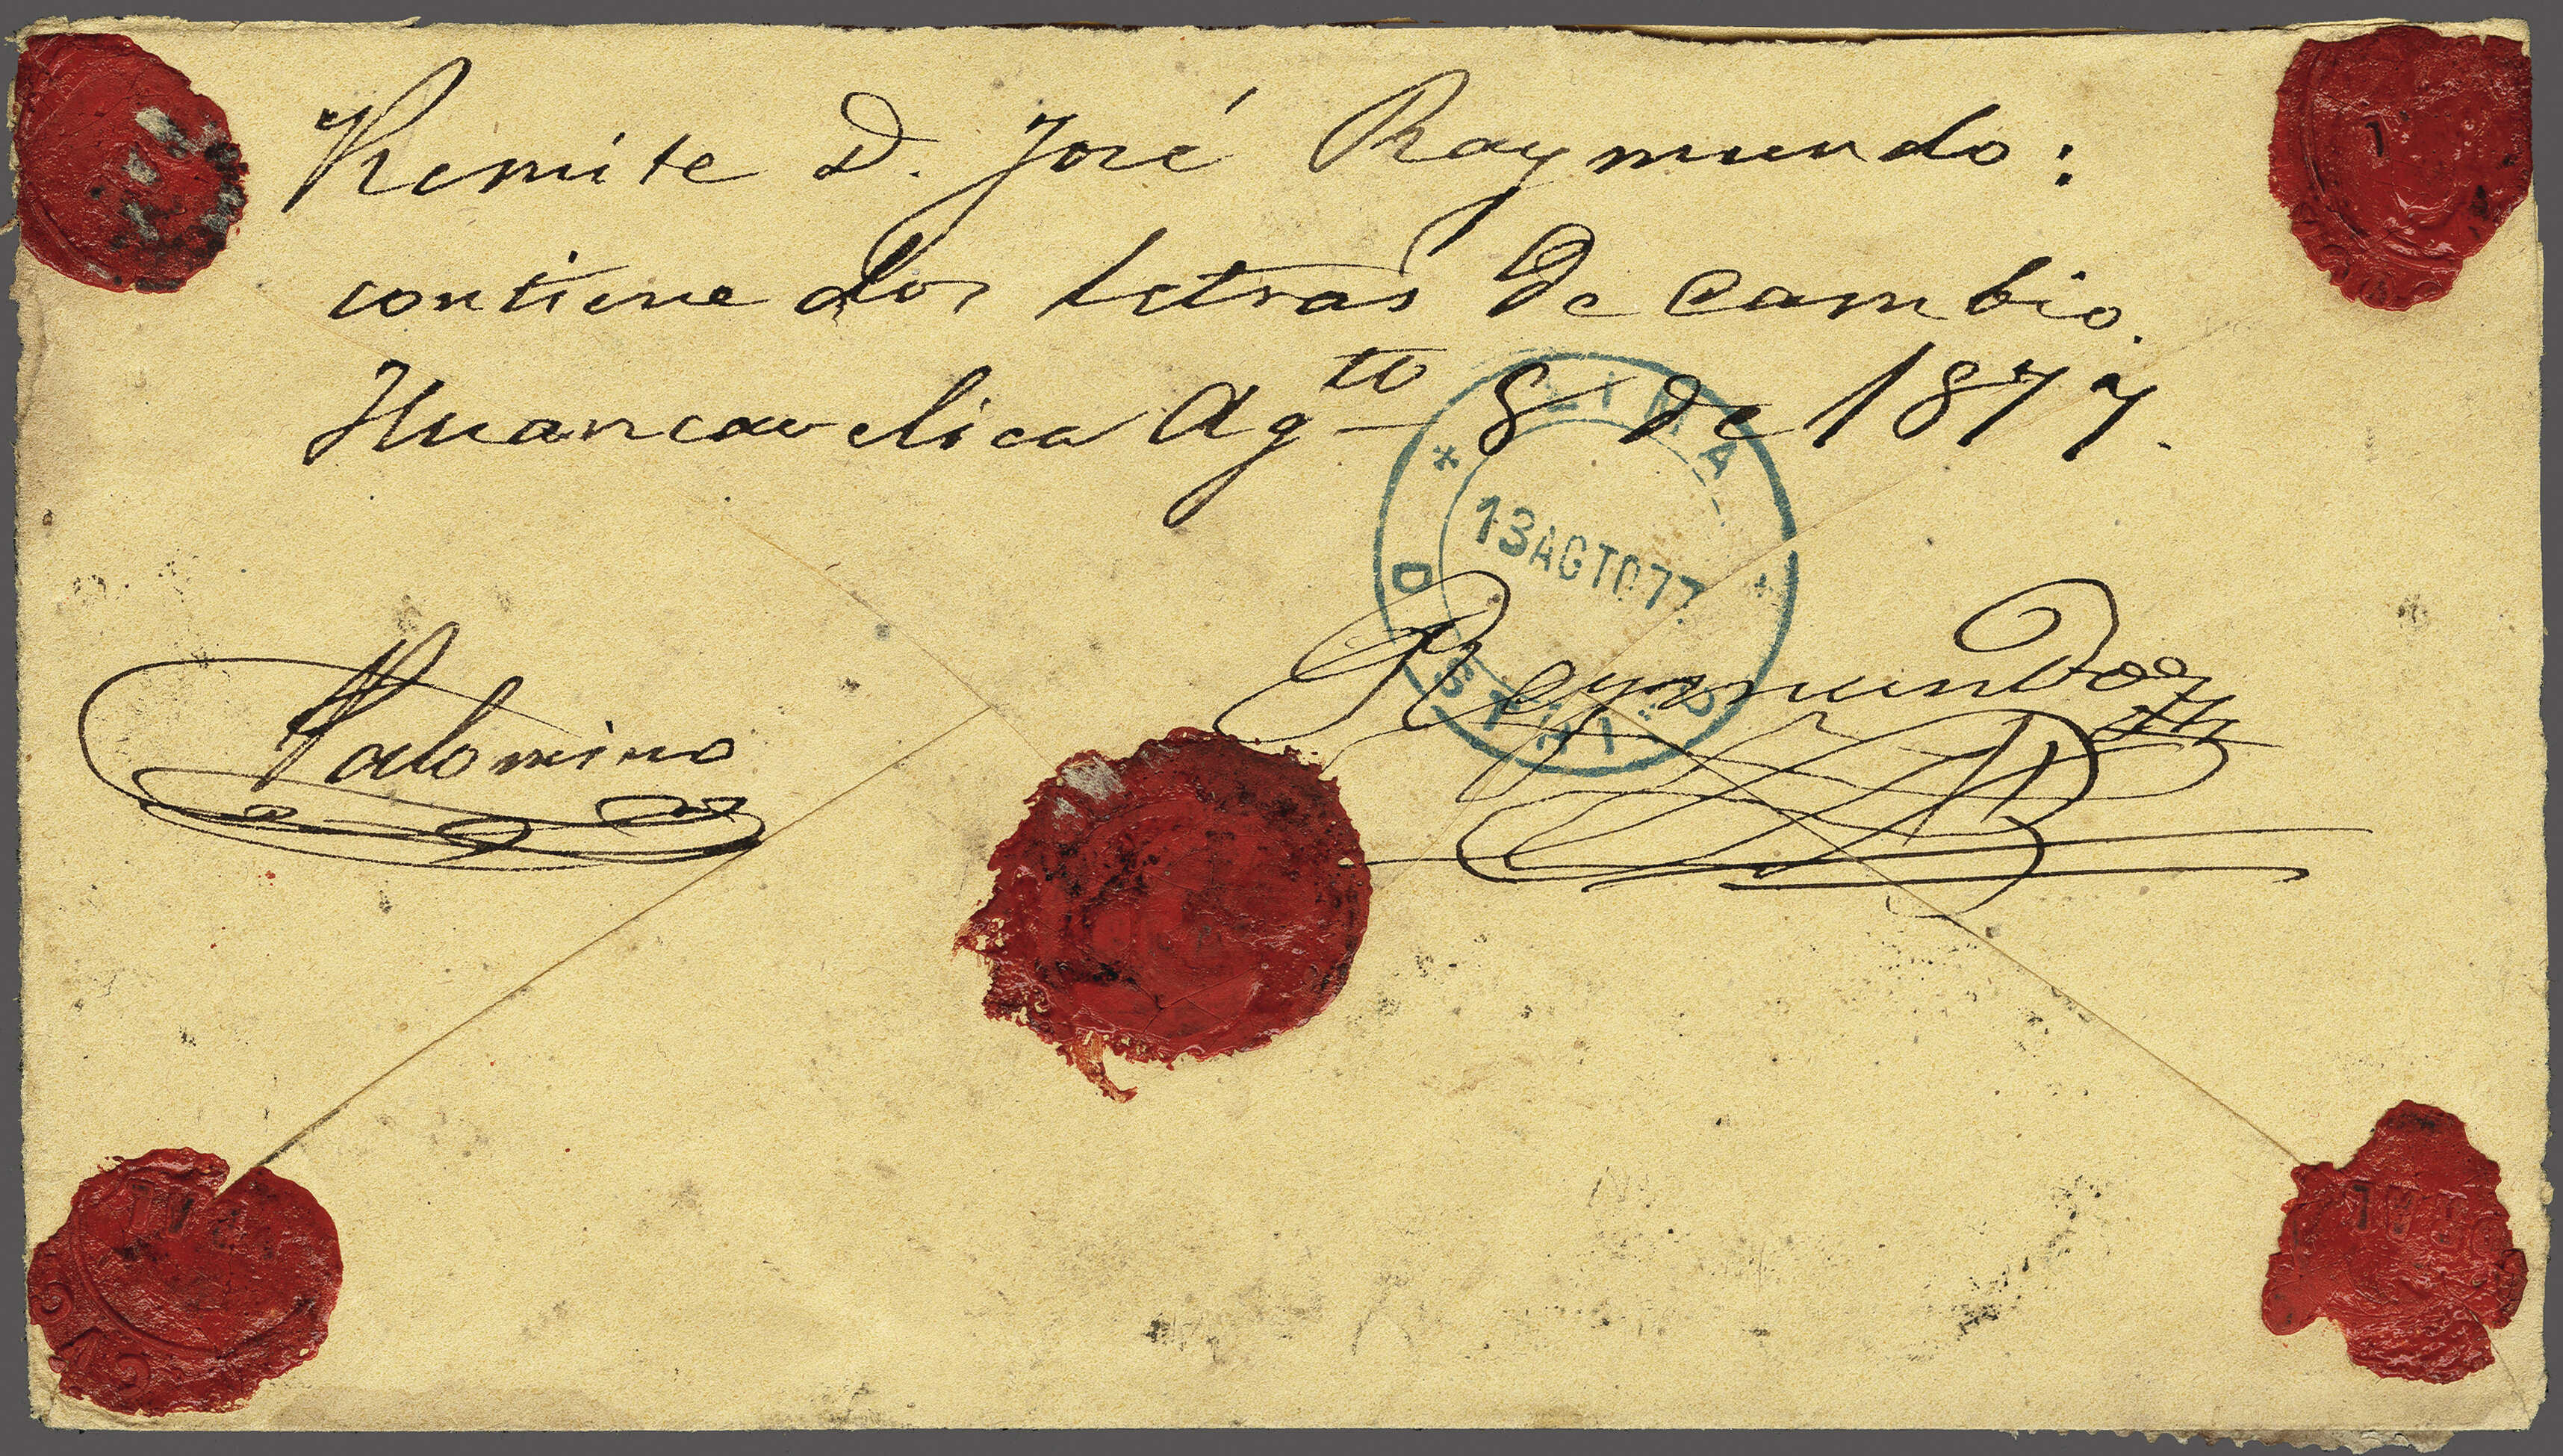 Remite D. José Raymundo:
contiene dos letras de cambio.
Huancavelica Agto 8 de 1877.
LIMA
13 AGTO 77
Palomino
Reymundo